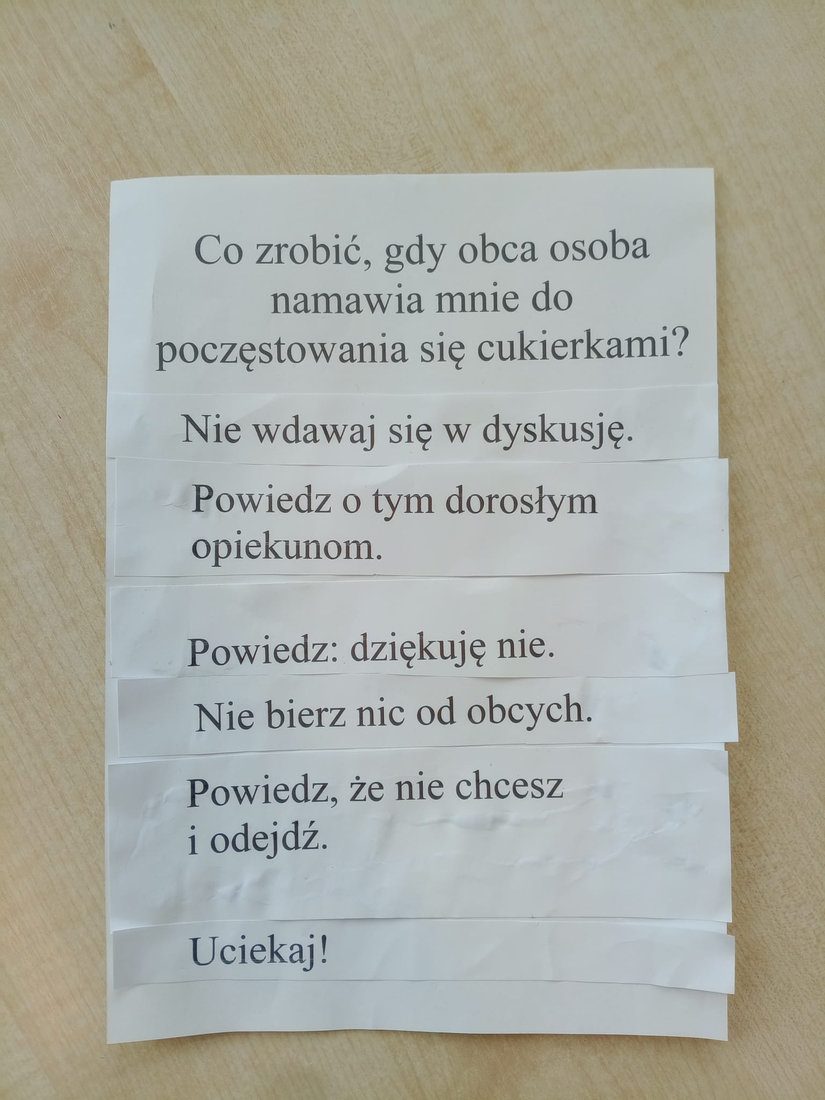 Co zrobić, gdy obca osoba
namawia mnie do
poczęstowania się cukierkami?
Nie wdawaj się w dyskusję.
Powiedz o tym dorosłym
opiekunom.
Powiedz: dziękuję nie.
Nie bierz nic od obcych.
Powiedz, że nie chcesz
i odejdź.
Uciekaj!